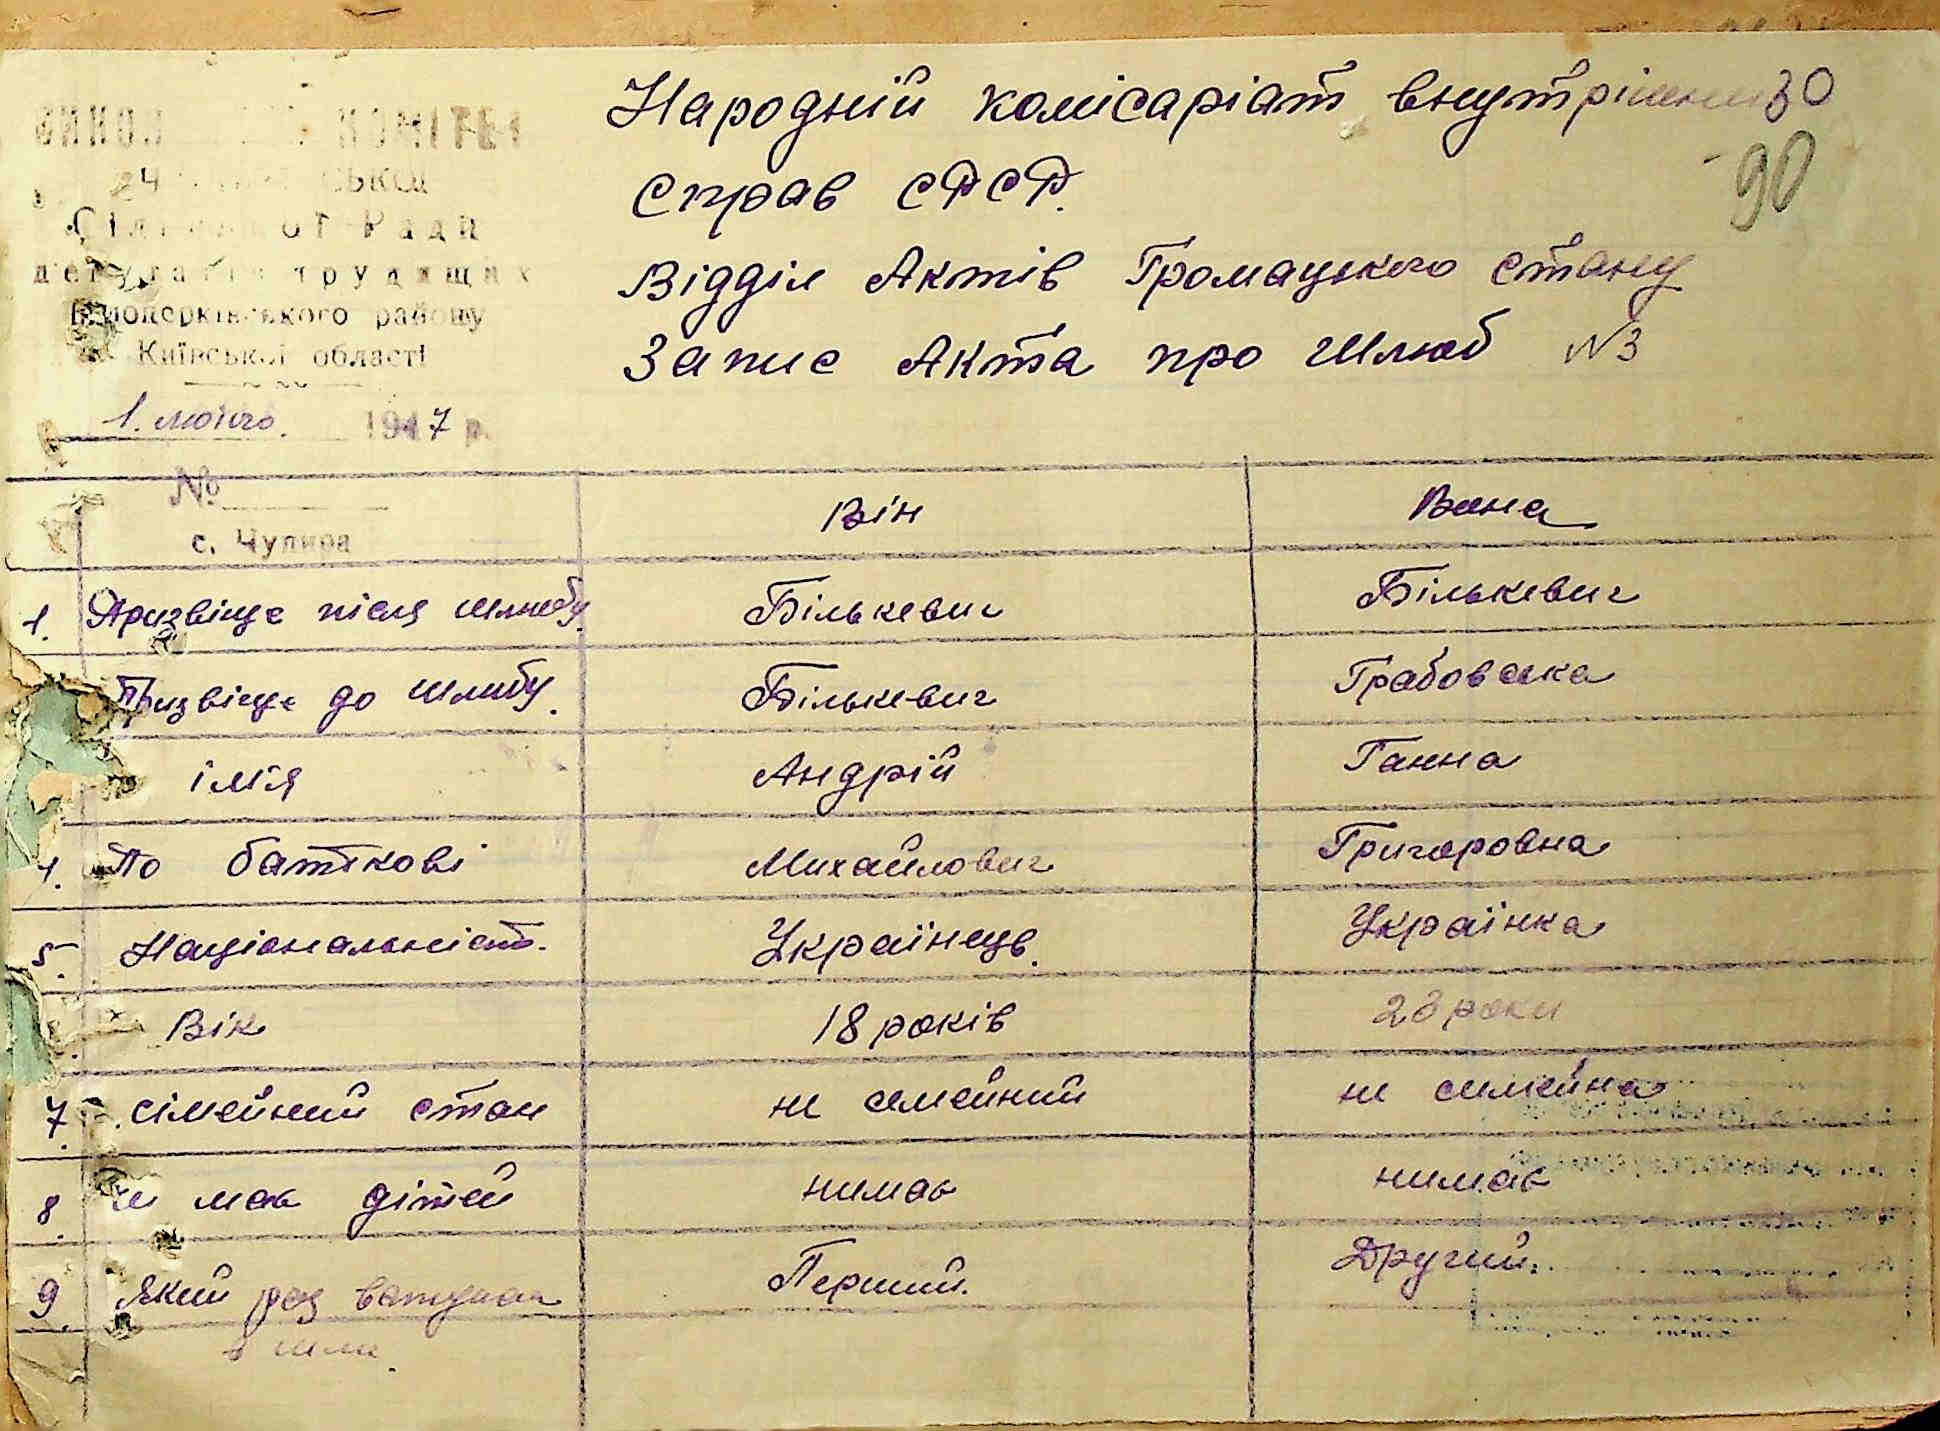 Народній комісаріат внутрішни
30
Справ СРСР.
90
Відділ Актів Громацького стану
Запис Акта про Шлюб №3
КОМІТЕТ
Ради
депутатів трудящих
Білоцерківського району
Київської області
1. лютого. 1947 р.
№
с. Чупира
Він Вона
1. Призвіще після шлюбу. Більке­вич Бількевич
Призвіще до шлюбу. Бількевич Грабовська
імія Андрій Ганна
4. По батькові Михайлович Григоровна
5. Національність. Українець. Українка
Вік 18 років 23 роки
7. сімейний стан не семейний не семейна
8. Чи має дітей нимає нимає
9. Який раз вступає Перший. Другий.
в шлю